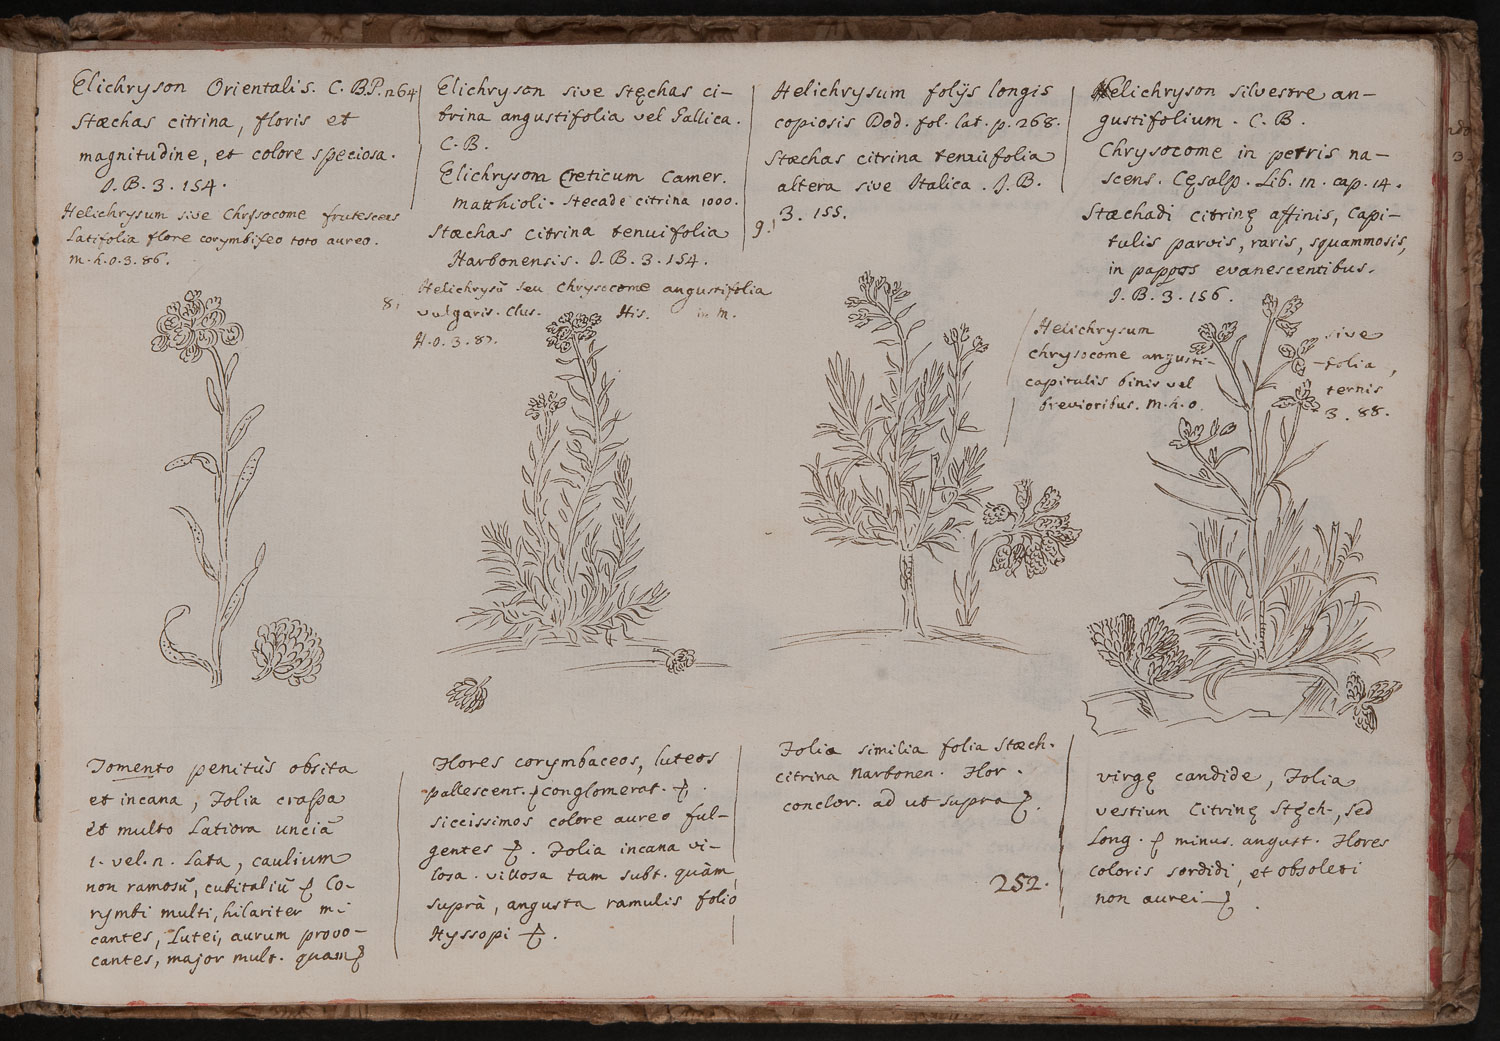 Elichryson Orientalis. C. B.P. n64
Stæchas citrina, floris et
magnitudine, et colore speciosa.
J. B. 3. 154.
Helichrysum sive Chrysocome frutescens
Latifolia flore corymbifeo toto aureo.
m. h. o. 3. 86.
Elichryson sive Stęchas ci-
trina angustifolia vel Gallica.
C. B.
Elichrysom Creticum Camer.
matthioli. Stecade citrina 1000.
Stæchas citrina tenuifolia
Narbonensis. J. B. 3. 154.
8.
Helichrysū seu Chrysocome angustifolia
vulgaris. Clus. His. in m.
H. o. 3. 87.
Helichrysum folijs longis
copiosis Dod. fol. lat. p. 268.
Stæchas citrina tenuifolia
altera sive Italica. J. B.
3. 155.
9.
Helichryson silvestre an-
gustifolium. C. B.
Chrysocome in petris na-
scens. Cęsalp. Lib. 1n. cap. 14.
Stæchadi citrinę affinis, Capi-
tulis parvis, raris, squammosis,
in pappos evanescentibus.
J. B. 3. 156.
Helichrysum sive
Chrysocome angusti- folia,
capitulis binis vel ternis
brevioribus. m. h. o. 3. 88.
Tomento penitùs obsita
et incana, Folia crassa
et multo Latiora unciā
1. vel. n. Lata, caulium
non ramosū, cubitaliū & Co-
rymbi multi, hilariter mi
cantes, Lutei, aurum provo-
cantes, major mult. quam
Flores corymbaceos, luteos
pallescent. & conglomerat. &.
siccissimos colore aureo ful-
gentes &. Folia incana vi-
losa. villosa tam subt. quàm
suprà, angusta ramulis folio
Hyssopi &.
Folia similia folia Stæch.
citrina Narbonen. Flor.
concolor. ad ut supra &.
252.
virgę candide, Folia
vestiun Citrinę Stęch., sed
Long. & minus. angust. Flores
coloris sordidi, et obsoleti
non aurei &.